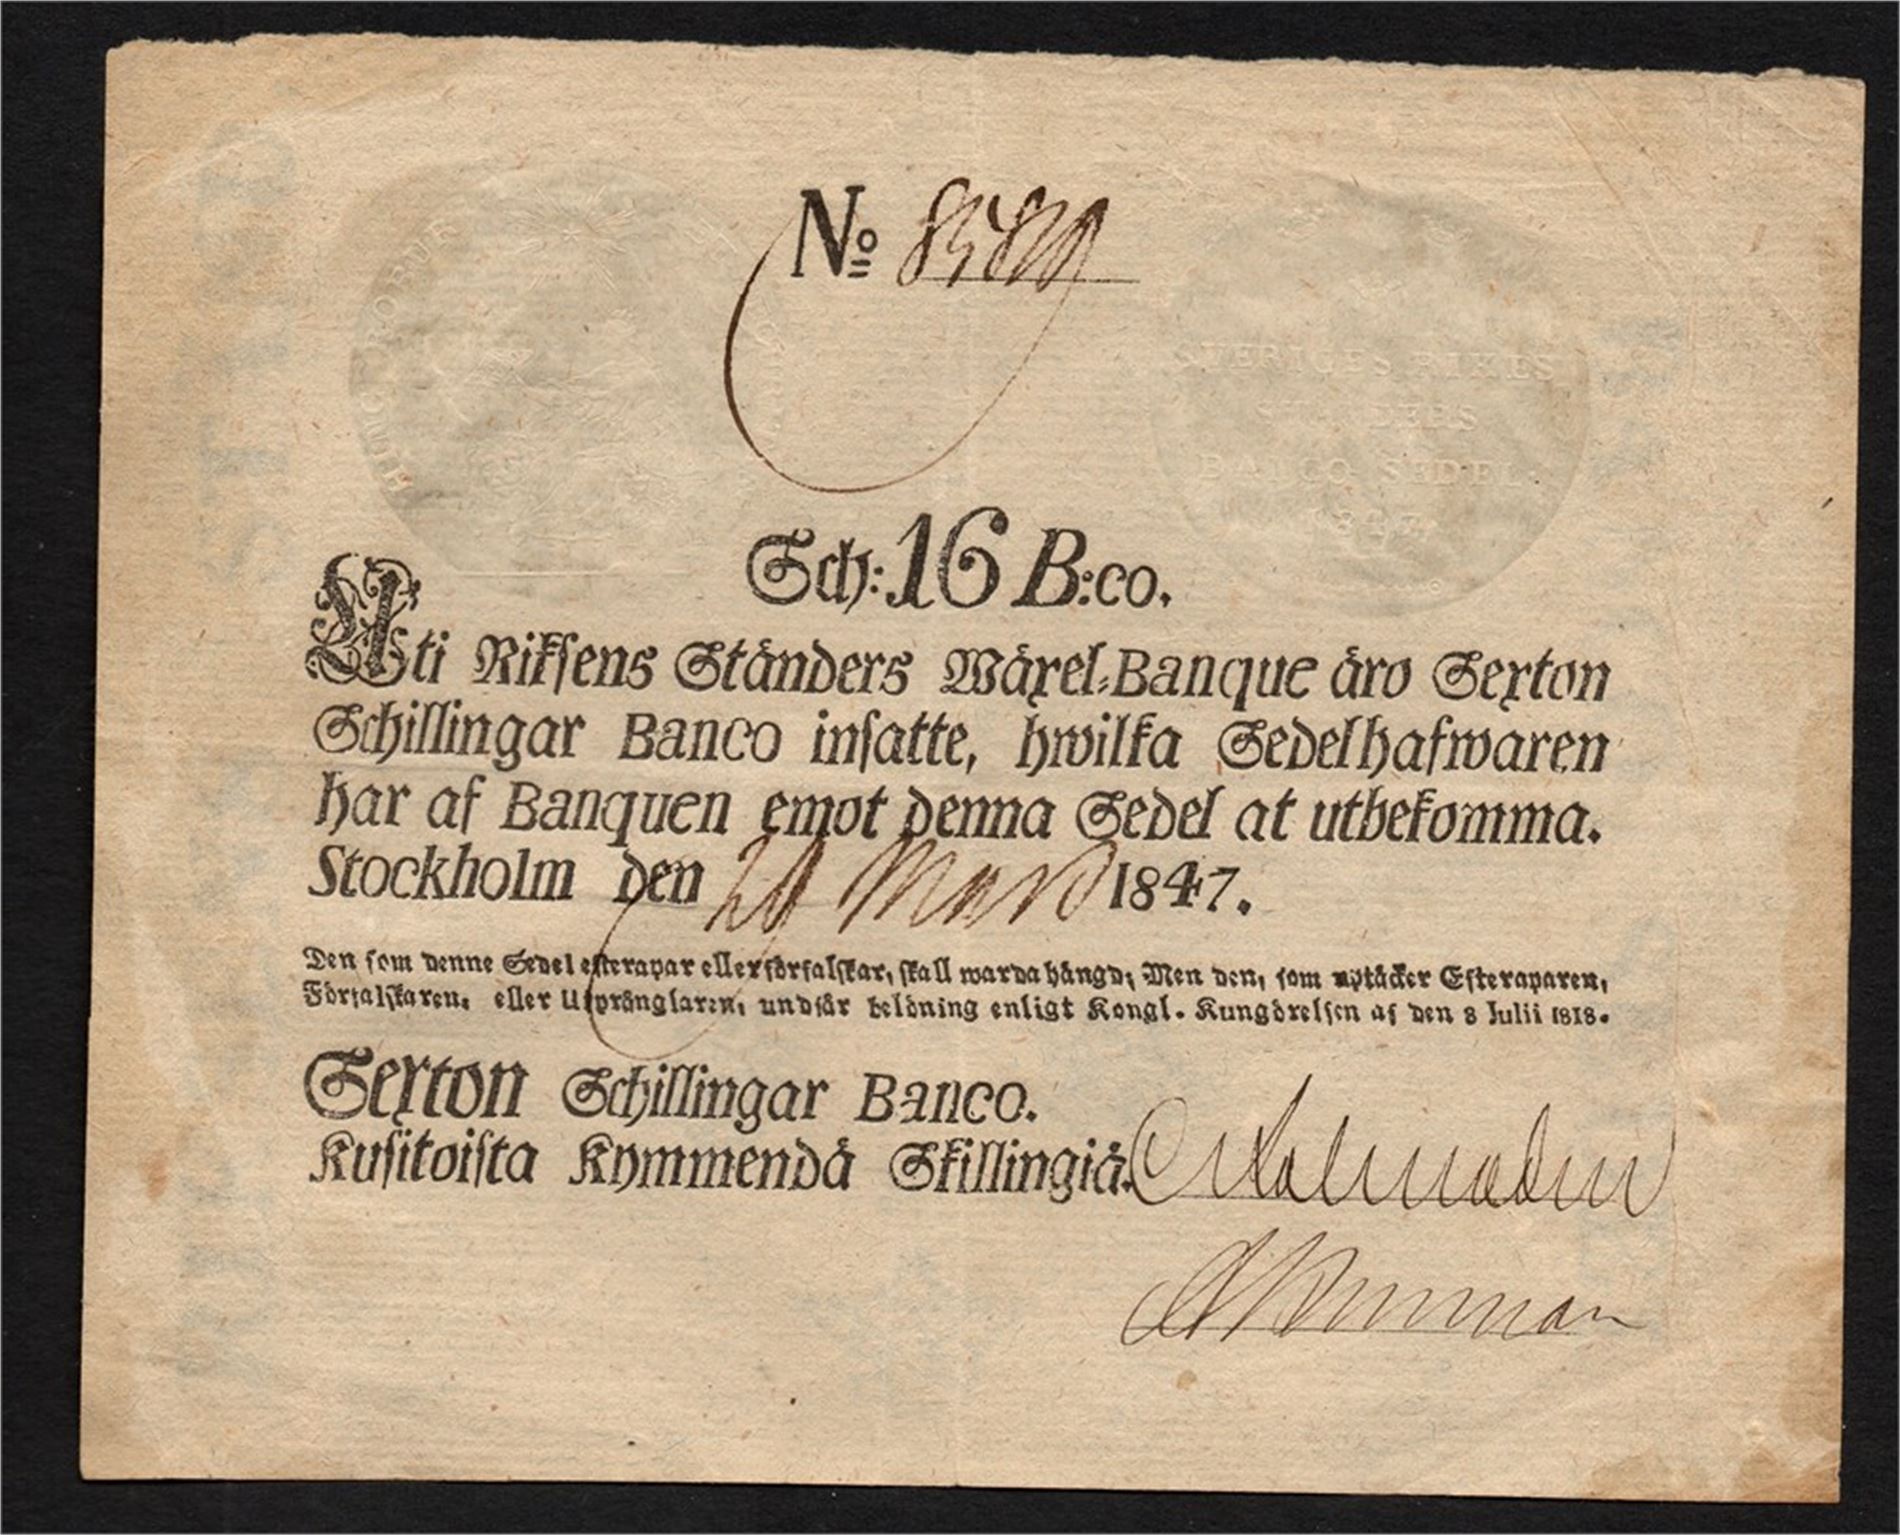 No
HINC ROBUR
SVERIGES RIKES
STÄNDERS
BANCO SEDEL
1847
Sch: 16 B:co.
Uti Riksens Ständers Wäxel-Banque äro Sexton
Schillingar Banco insatte, hwilka Sedelhafwaren
har af Banquen emot denna Sedel at utbekomma.
Stockholm den 1847.
Den som denne Sedel efterapar eller förfalskar, skall warda hängd; Men den, som uptäcker Efteraparen,
Förfalskaren, eller Utprånglaren, undfår belöning enligt Kongl. Kungörelsen af den 8 Julii 1818.
Sexton Schillingar Banco.
Kusitoista Kymmendä Skillingiä.